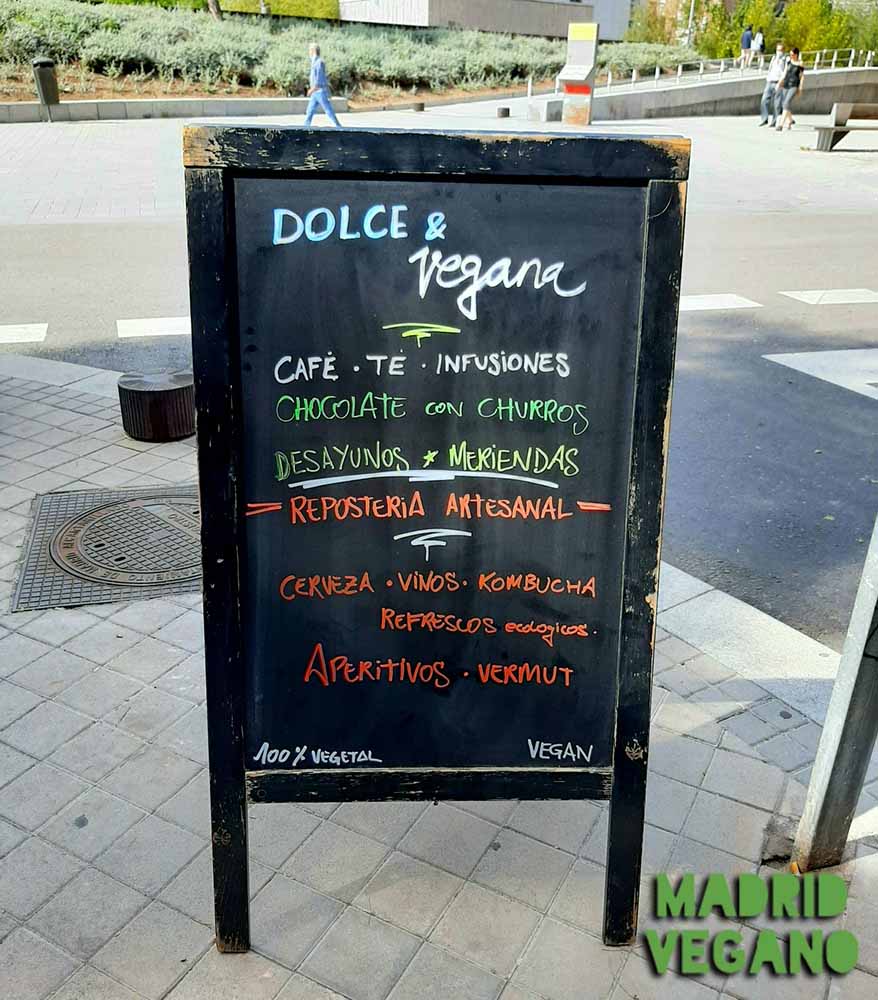 DOLCE &
Vegana
CAFÉ · TÉ · INFUSIONES
CHOCOLATE CON CHURROS
DESAYUNOS * MERIENDAS
REPOSTERIA ARTESANAL
CERVEZA · VINOS · KOMBUCHA
REFRESCOS ecologicos.
APERITIVOS · VERMUT
100% VEGETAL VEGAN
MADRID
VEGANO